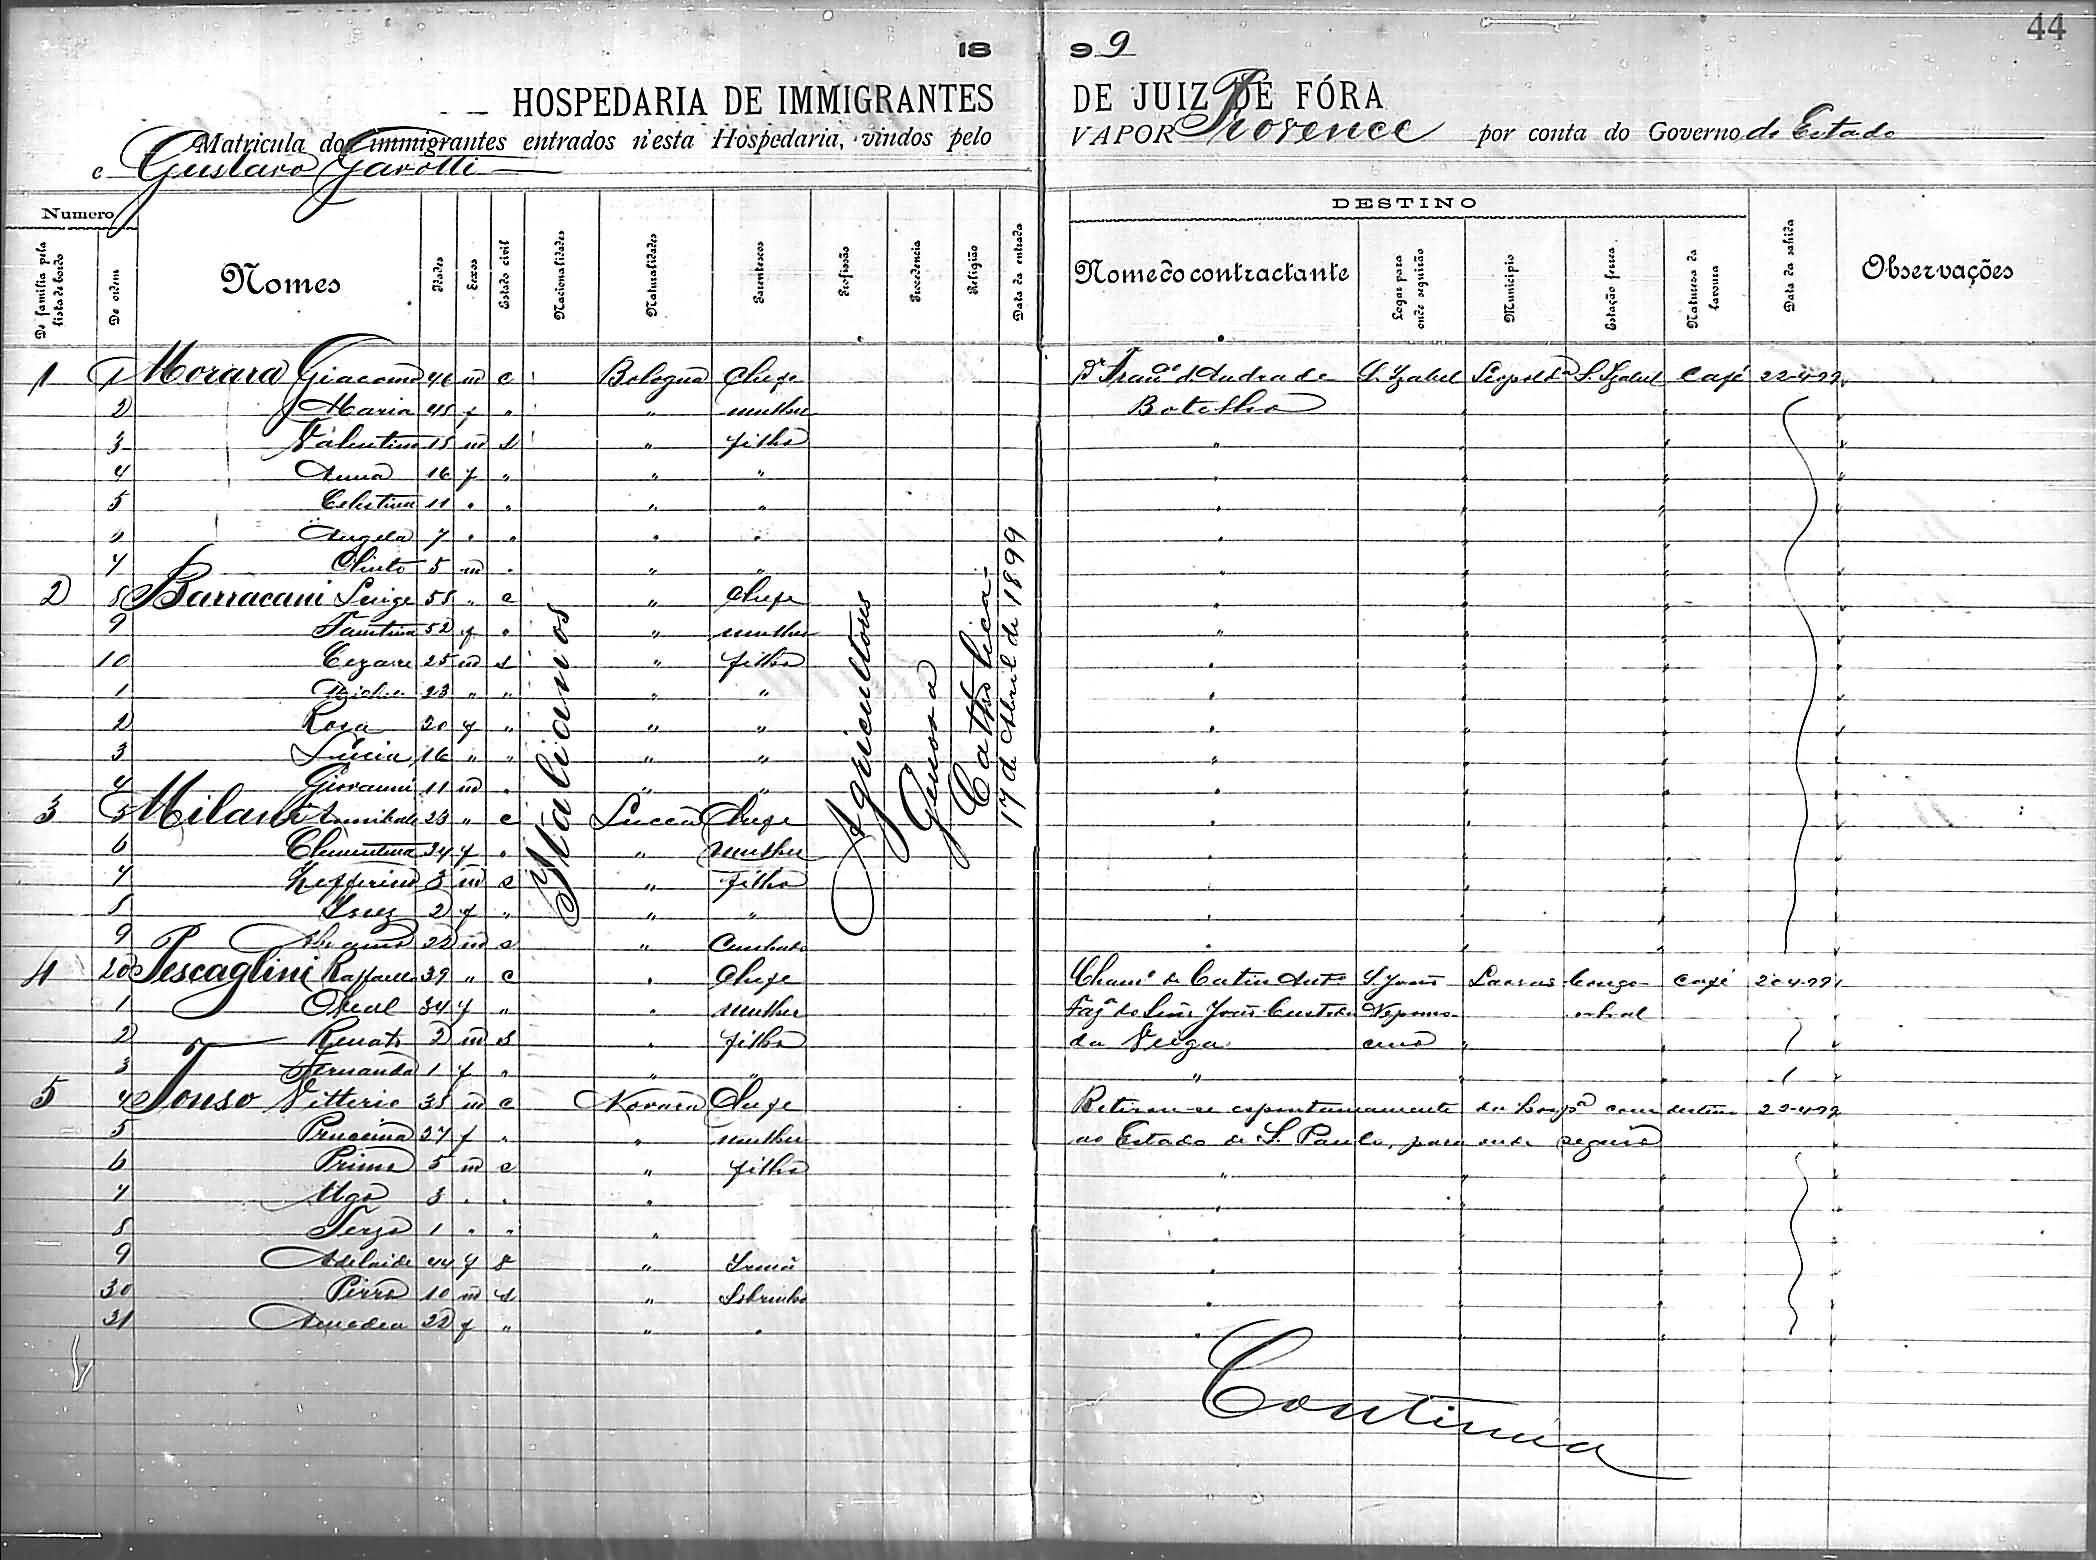 44
18 99
HOSPEDARIA DE IMMIGRANTES DE JUIZ DE FÓRA
Matricula dos immigrantes entrados n'esta Hospedaria, vindos pelo VAPOR Provence por conta do Governo do Estado
e Gustavo Garotti
Numero DESTINO
De familia pela lista de bordo De ordem Nomes Idades Sexos Estado civil Nacionalidades Naturalidades Parentescos Profissão Procedencia Religião Data da entrada Nome do contractante Logar para onde seguirão Municipio Estação ferrea Natureza da lavoura Data da sahida Observações
1 1 Morara Giacomo 46 m c Bologna Chefe Dr Franco d'Andrade S. Izabel Leopolda S. Izabel Café 22-4-99
2 Maria 45 f " " mulher Botelho
3 Valentino 15 m s " filho "
4 Anna 16 f " " "
5 Celestina 11 " " " "
" Angela 7 " " " "
7 5 m " " "
2 8 Barracani Luige 55 " c " Chefe
9 Faustina 52 f " " mulher "
10 Cezare 25 m s " filho
1 23 " " " "
2 Rosa 20 f " " "
3 Lucia 16 " " " "
4 Giovanni 11 m " " "
3 5 Milani Annibale 23 " c Lucca Chefe
6 Clementina 24 f " " mulher
7 Zefferino 3 m s " filho
8 Inez 2 f " " "
9 22 m s " Cunhado
4 20 Pescaglini Raffaele 39 " c " Chefe S. João Lavras Congo- Café 20-4-99
1 34 f " " mulher Nepomu-
2 Renato 2 m s " filho da Veiga ceno
3 Fernanda 1 f " " " "
5 4 Tonso Vittorio 35 m c Novara Chefe Retirou-se espontaneamente da hospa com destino 20-4-99
5 27 f " " mulher ao Estado de S. Paulo, para onde seguiu
6 Primo 5 m s " filho "
7 Ugo 3 " " "
8 Terzo 1 " " "
9 Adelaide 44 f s " Irmã
30 Pierro 10 m s " Sobrinho
31 Amedea 22 f " " "
Italianos
Agricultores
Genova
Catholica
17 de Abril de 1899
Continúa